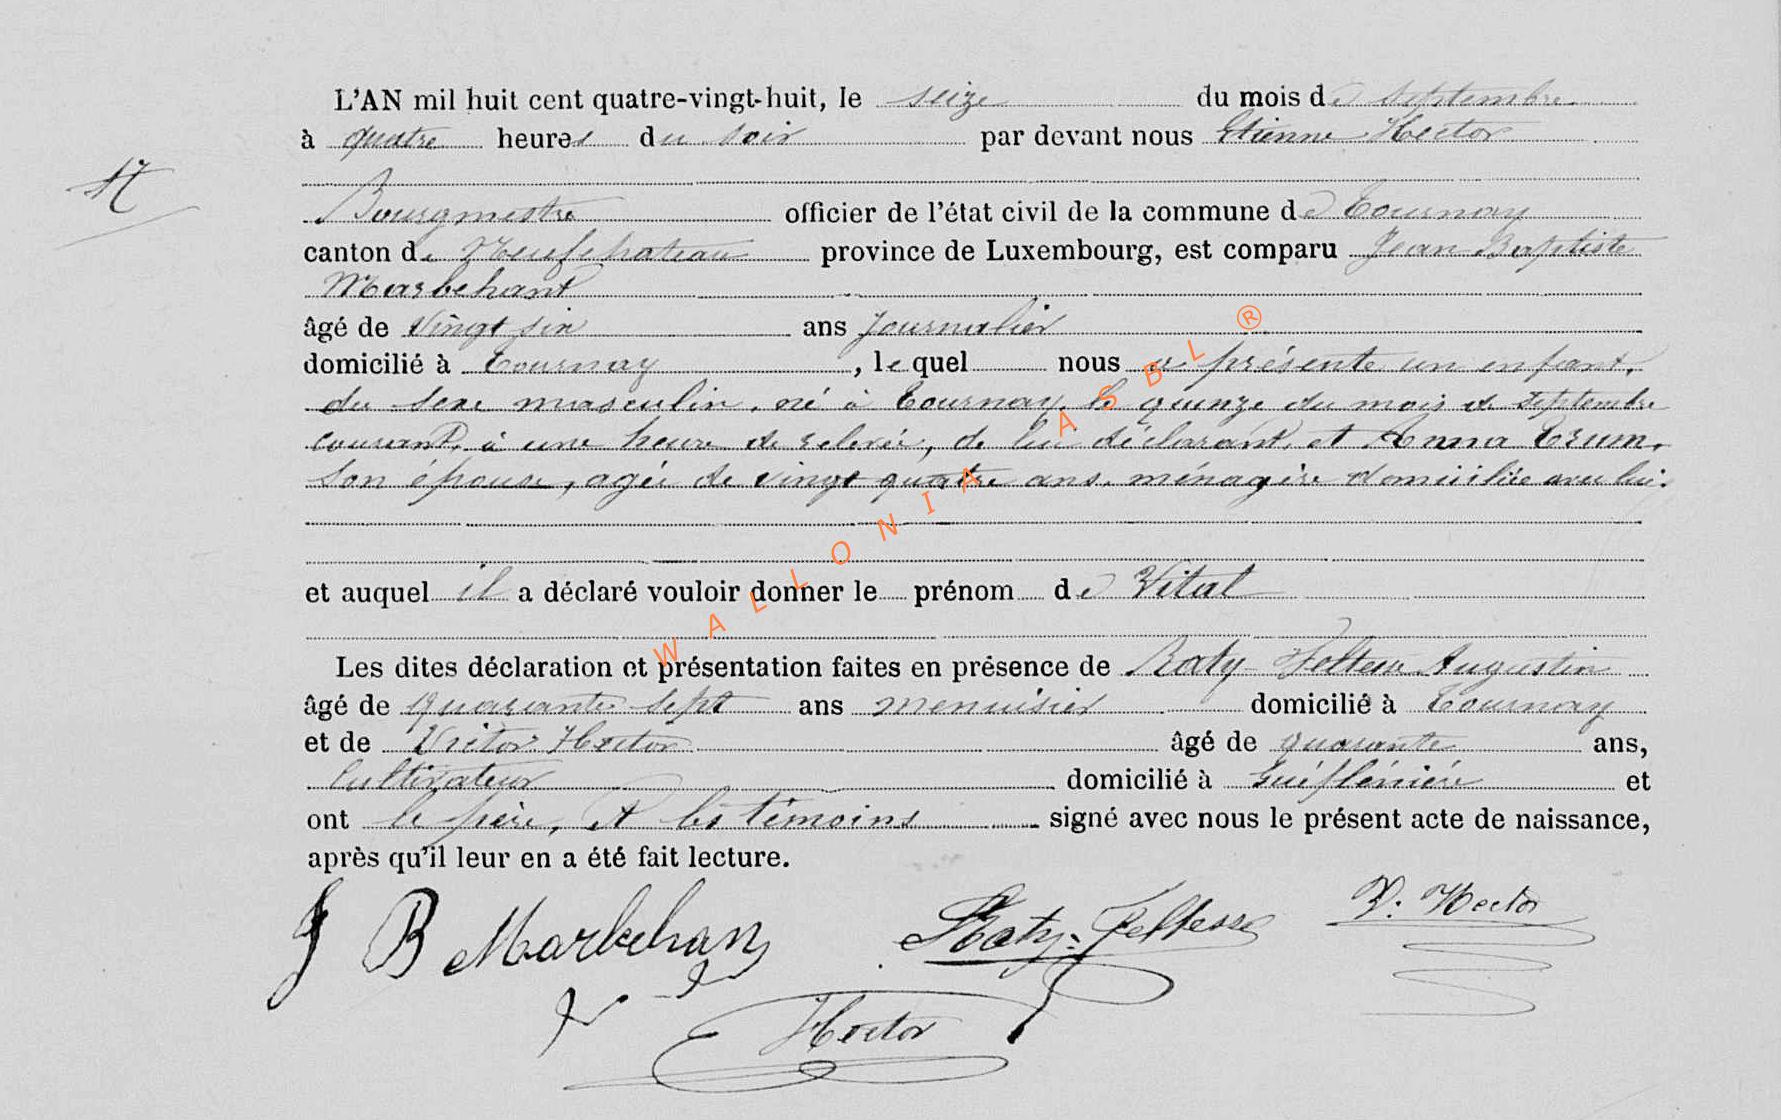 L'AN mil huit cent quatre-vingt-huit, le seize du mois de septembre
à quatre heures du soir par devant nous Etienne Hector
17
Bourgmestre officier de l'état civil de la commune de Tournay
canton de Neufchateau province de Luxembourg, est comparu Jean Baptiste
Marbehant
âgé de vingt six ans Journalier
domicilié à Tournay, lequel nous a présenté un enfant,
du sexe masculin, né à Tournay, le quinze du mois de septembre
courant, à une heure de relevée, de lui déclarant, et Anna
son épouse, agée de vingt quatre ans, ménagère domiciliée avec lui.
et auquel il a déclaré vouloir donner le prénom de Vital
Les dites déclaration et présentation faites en présence de Raty Augustin
âgé de quarante sept ans menuisier domicilié à Tournay
et de Victor Hector âgé de quarante ans,
cultivateur domicilié à et
ont le père, et les témoins signé avec nous le présent acte de naissance,
après qu'il leur en a été fait lecture.
J B Marbehan Raty-Feltesse V. Hector
Hector
WALLONIA ASBL ®